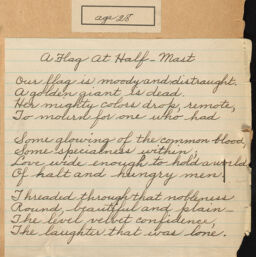 age 28
A Flag at Half-Mast
Our flag is moody and distraught.
A golden giant is dead.
Her mighty colors drop, remote,
To mourn for one who had
Some glowing of the common blood,
Some specialness within,
Love wide enough to hold a world
Of halt and hungry men.
Threaded through that nobleness
Round, beautiful and plain—
The level velvet confidence,
The laughter that was lone.